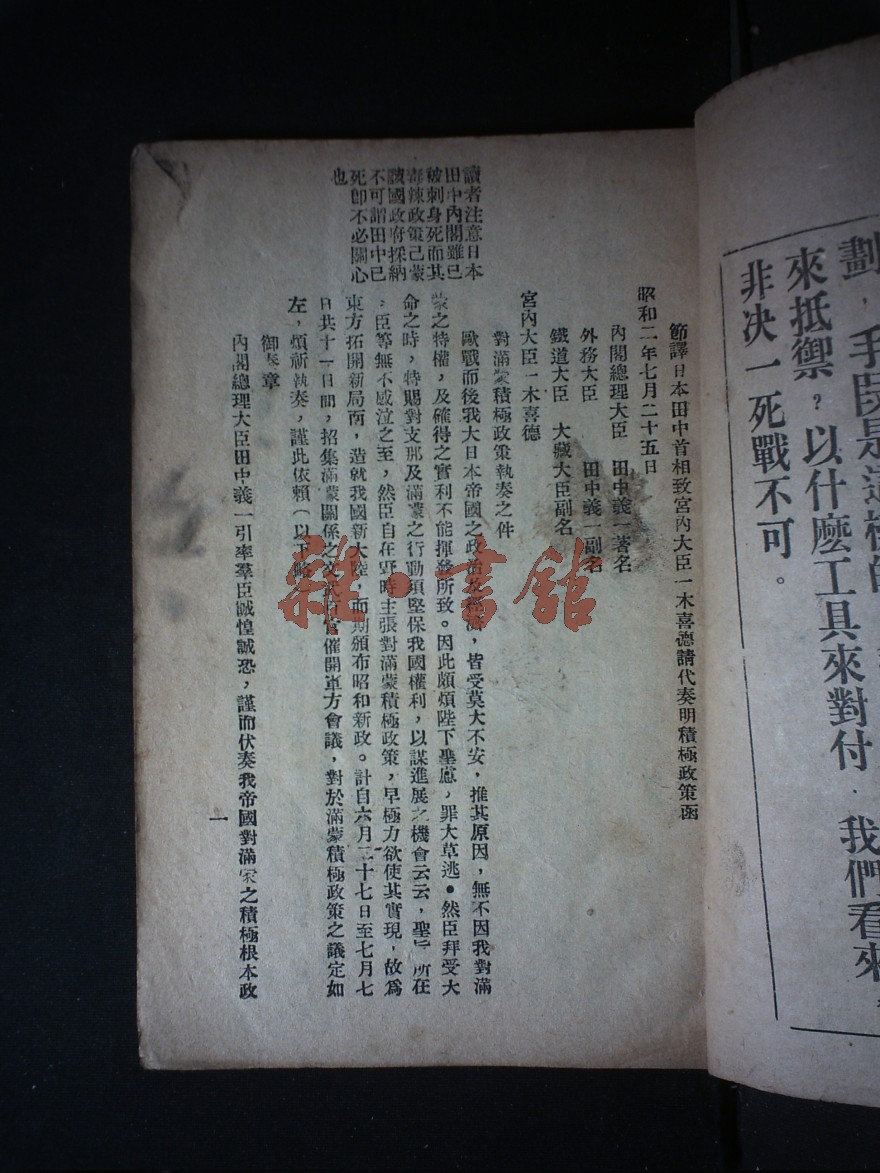 劃，手段是這樣的
來抵禦？以什麽工具來對付．我們看來
非决一死戰不可。
節譯日本田中首相致宮內大臣一木喜德請代奏明積極政策函
昭和二年七月二十五日
內閣總理大臣　田中義一著名
外務大臣　田中義一副名
鐵道大臣　大藏大臣副名
宮內大臣一木喜德
對滿蒙積極政策執奏之件
歐戰而後我大日本帝國之政治及經濟，皆受莫大不安，推其原因，無不因我對滿
蒙之特權，及確得之實利不能揮發所致。因此頗煩陛下聖慮，罪大草逃．然臣拜受大
命之時，特賜對支那及滿蒙之行動須堅保我國權利，以謀進展之機會云云，聖旨所在
，臣等無不感泣之至，然臣自在野時主張對滿蒙積極政策，早極力欲使其實現，故爲
東方拓開新局面，造就我國新大陸，而期頒布昭和新政。計自六月二十七日至七月七
日共十一日間，招集滿蒙關係之文武百官催開東方會議，對於滿蒙積極政策之議定如
左，煩祈執奏，謹此依賴（以下略）
御奏章
內閣總理大臣田中義一引率羣臣誠惶誠恐，謹而伏奏我帝國對滿蒙之積極根本政
讀者注意日本
田中內閣雖已
被刺身死而其
毒辣政策已蒙
該國政府採納
不可謂田中已
死卽不必關心
也
一
雜·書館